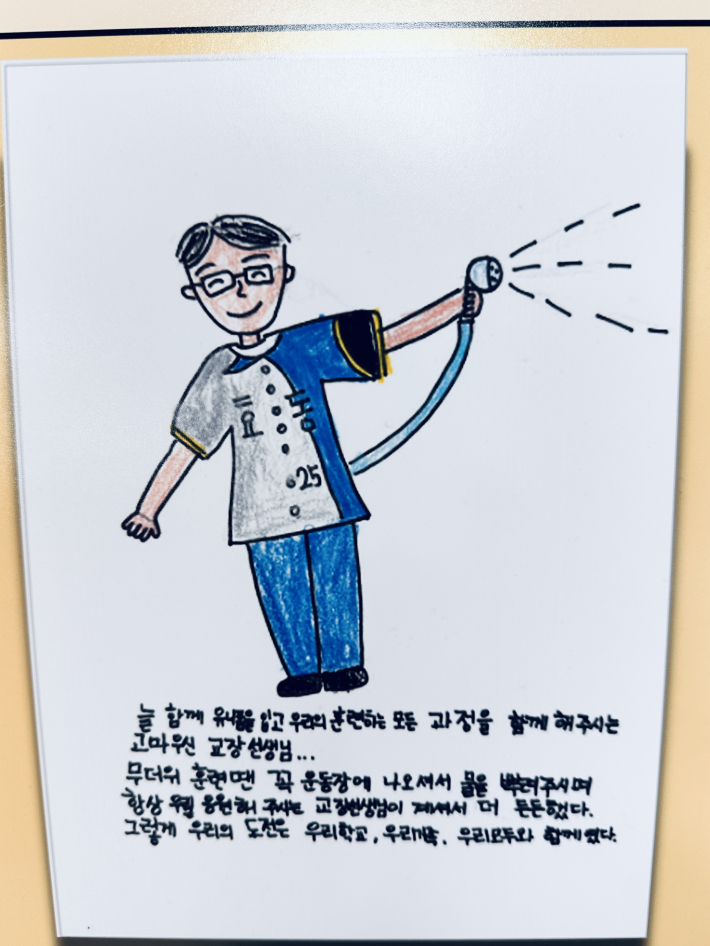 효 동
25
늘 함께 유니폼을 입고 우리의 훈련하는 모든 과정을 함께 해주시는
고마우신 교장선생님...
무더위 훈련땐 꼭 운동장에 나오셔서 물을 뿌려주시며
항상 응원해 주시는 교장선생님이 계셔서 더 든든했다.
그렇게 우리의 도전은 우리학교, 우리가족, 우리모두와 함께였다.